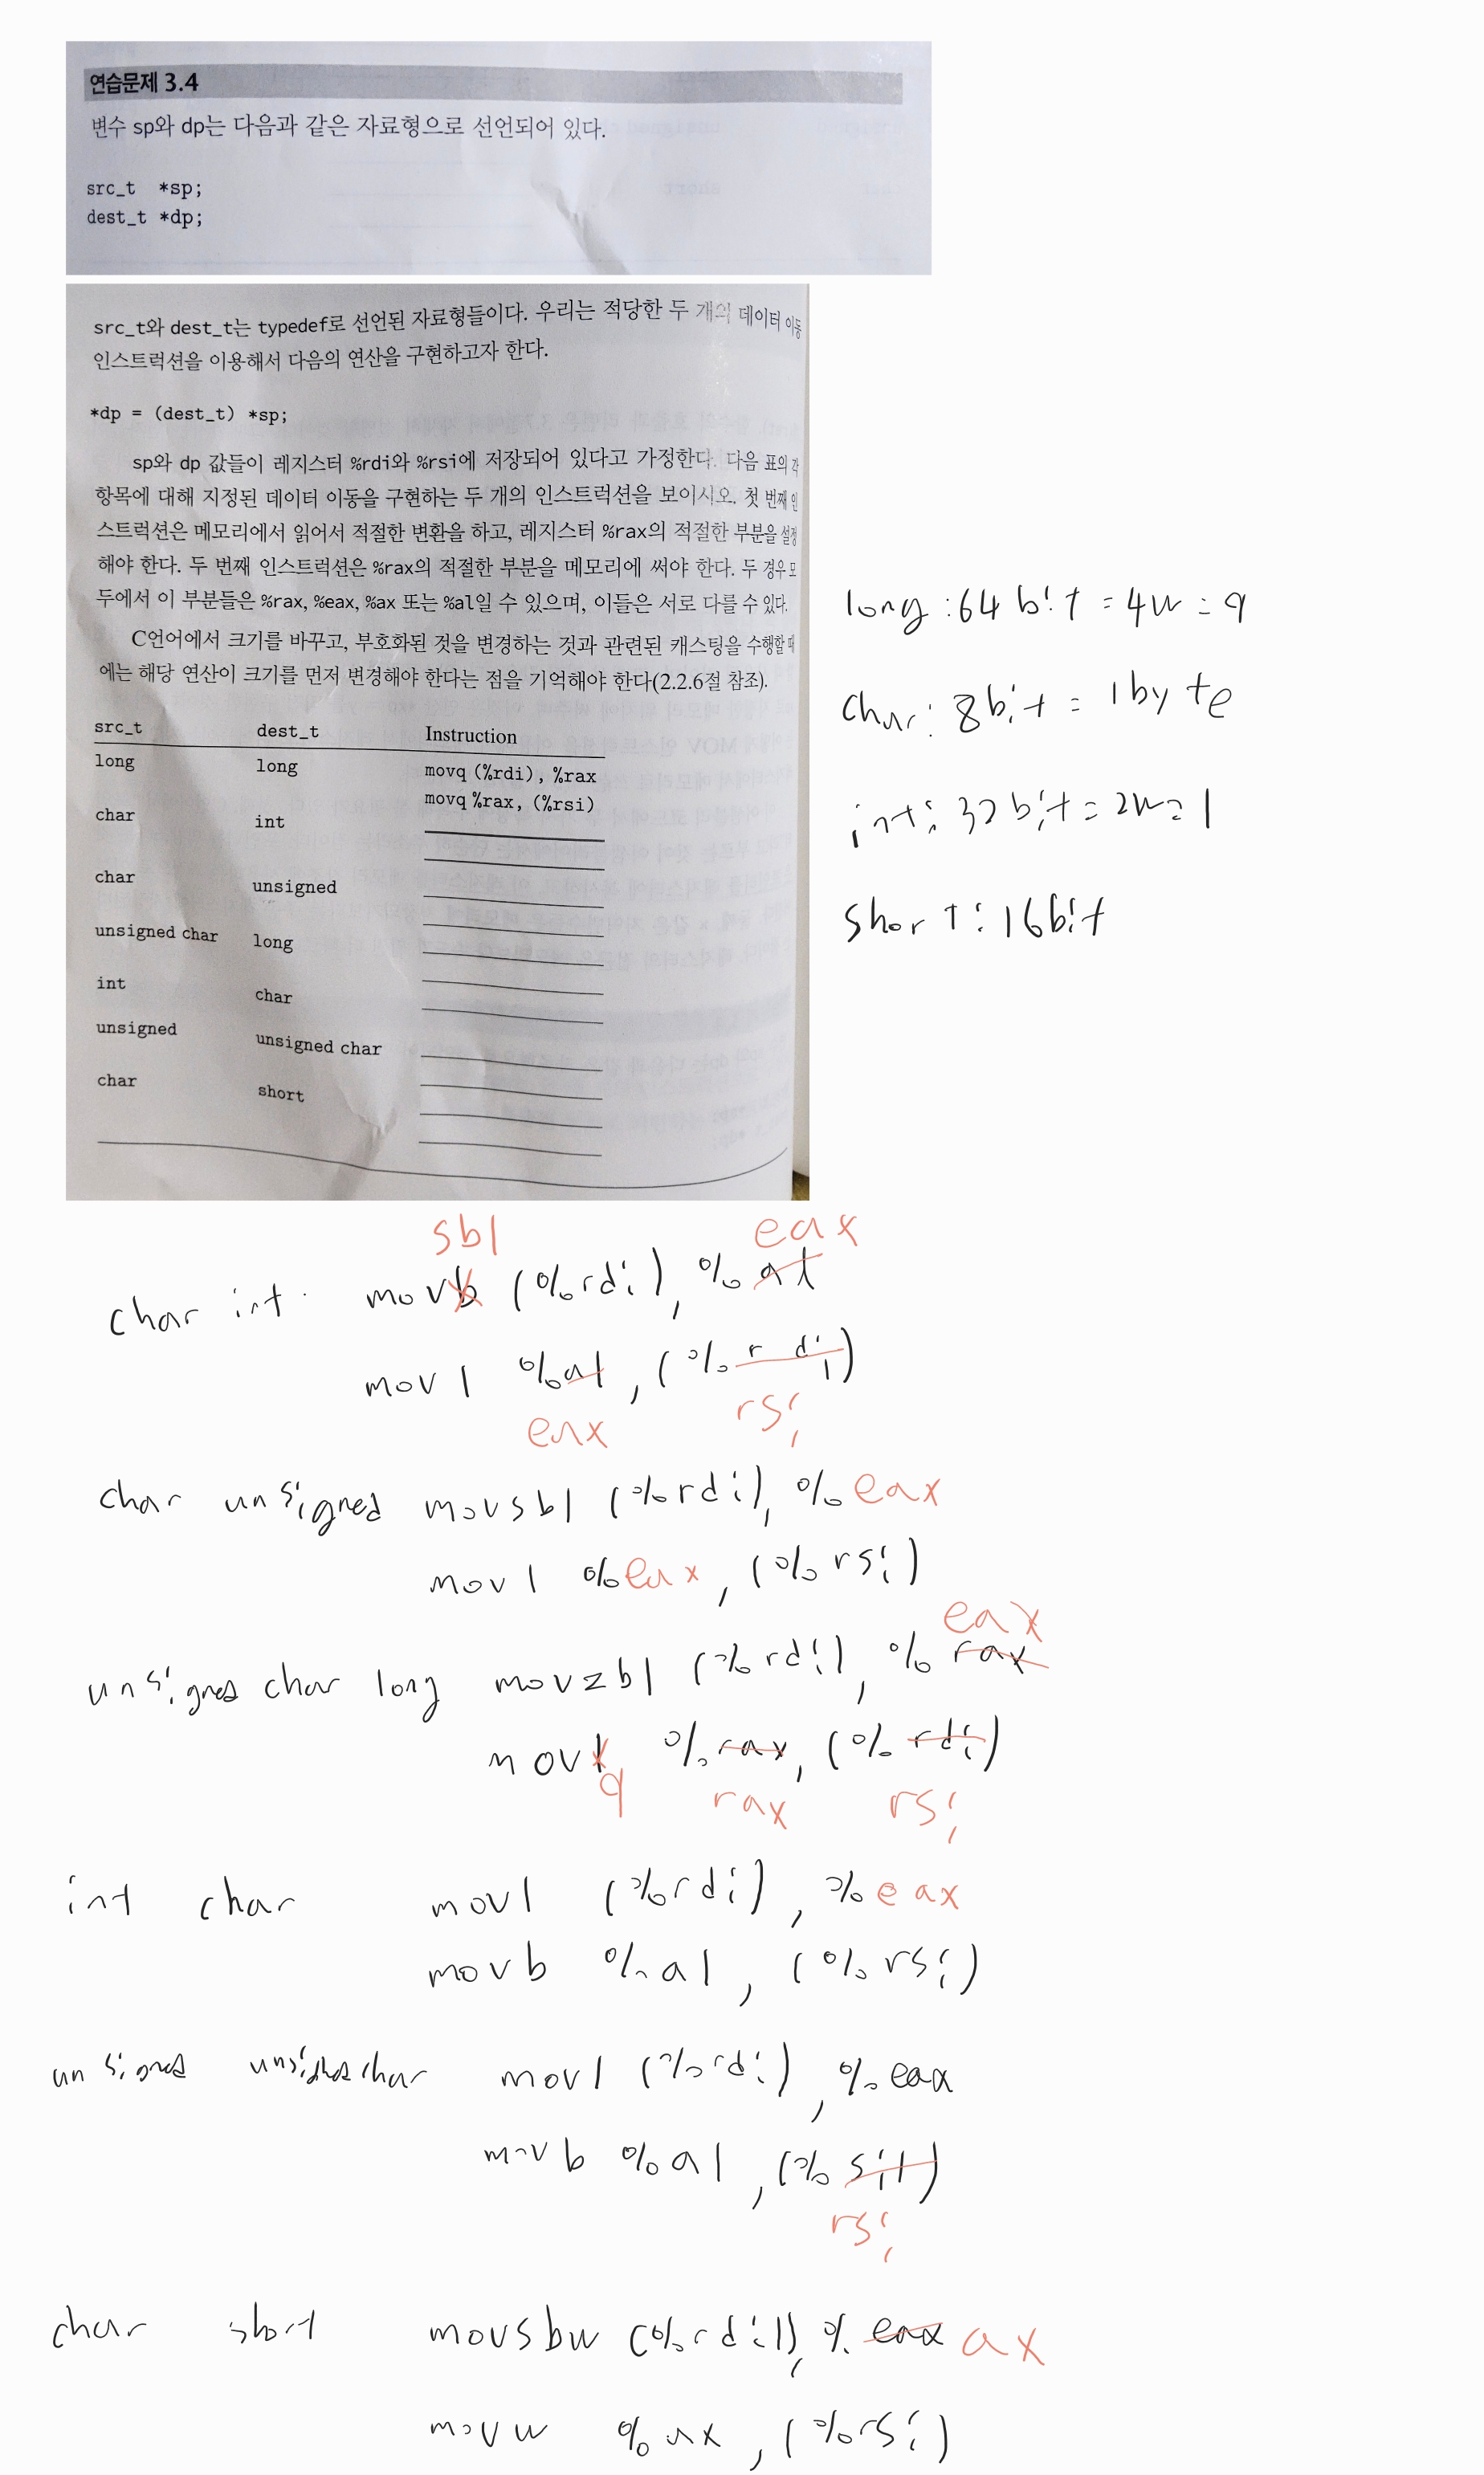 연습문제 3.4
변수 sp와 dp는 다음과 같은 자료형으로 선언되어 있다.
src_t *sp;
dest_t *dp;
src_t와 dest_t는 typedef로 선언된 자료형들이다. 우리는 적당한 두 개의 데이터 이동
인스트럭션을 이용해서 다음의 연산을 구현하고자 한다.
*dp = (dest_t) *sp;
sp와 dp 값들이 레지스터 %rdi와 %rsi에 저장되어 있다고 가정한다. 다음 표의 각
항목에 대해 지정된 데이터 이동을 구현하는 두 개의 인스트럭션을 보이시오. 첫 번째 인
스트럭션은 메모리에서 읽어서 적절한 변환을 하고, 레지스터 %rax의 적절한 부분을 설정
해야 한다. 두 번째 인스트럭션은 %rax의 적절한 부분을 메모리에 써야 한다. 두 경우 모
두에서 이 부분들은 %rax, %eax, %ax 또는 %al일 수 있으며, 이들은 서로 다를 수 있다.
C언어에서 크기를 바꾸고, 부호화된 것을 변경하는 것과 관련된 캐스팅을 수행할 때
에는 해당 연산이 크기를 먼저 변경해야 한다는 점을 기억해야 한다(2.2.6절 참조).
src_t dest_t Instruction
long long movq (%rdi), %rax
movq %rax, (%rsi)
char int
char unsigned
unsigned char long
int char
unsigned unsigned char
char short
long : 64 bit = 4w = q
char : 8 bit = 1 byte
int : 32 bit = 2w = l
short : 16 bit
sbl eax
char int movb (%rdi), %al
movl %al, (%rdi)
eax rsi
char unsigned movsbl (%rdi), %eax
movl %eax, (%rsi)
eax
unsigned char long movzbl (%rdi), %rax
movl %rax, (%rdi)
q rax rsi
int char movl (%rdi), %eax
movb %al, (%rsi)
unsigned unsigned char movl (%rdi), %eax
movb %al, (%sil)
rsi
char short movsbw (%rdi), %eax ax
movw %ax, (%rsi)